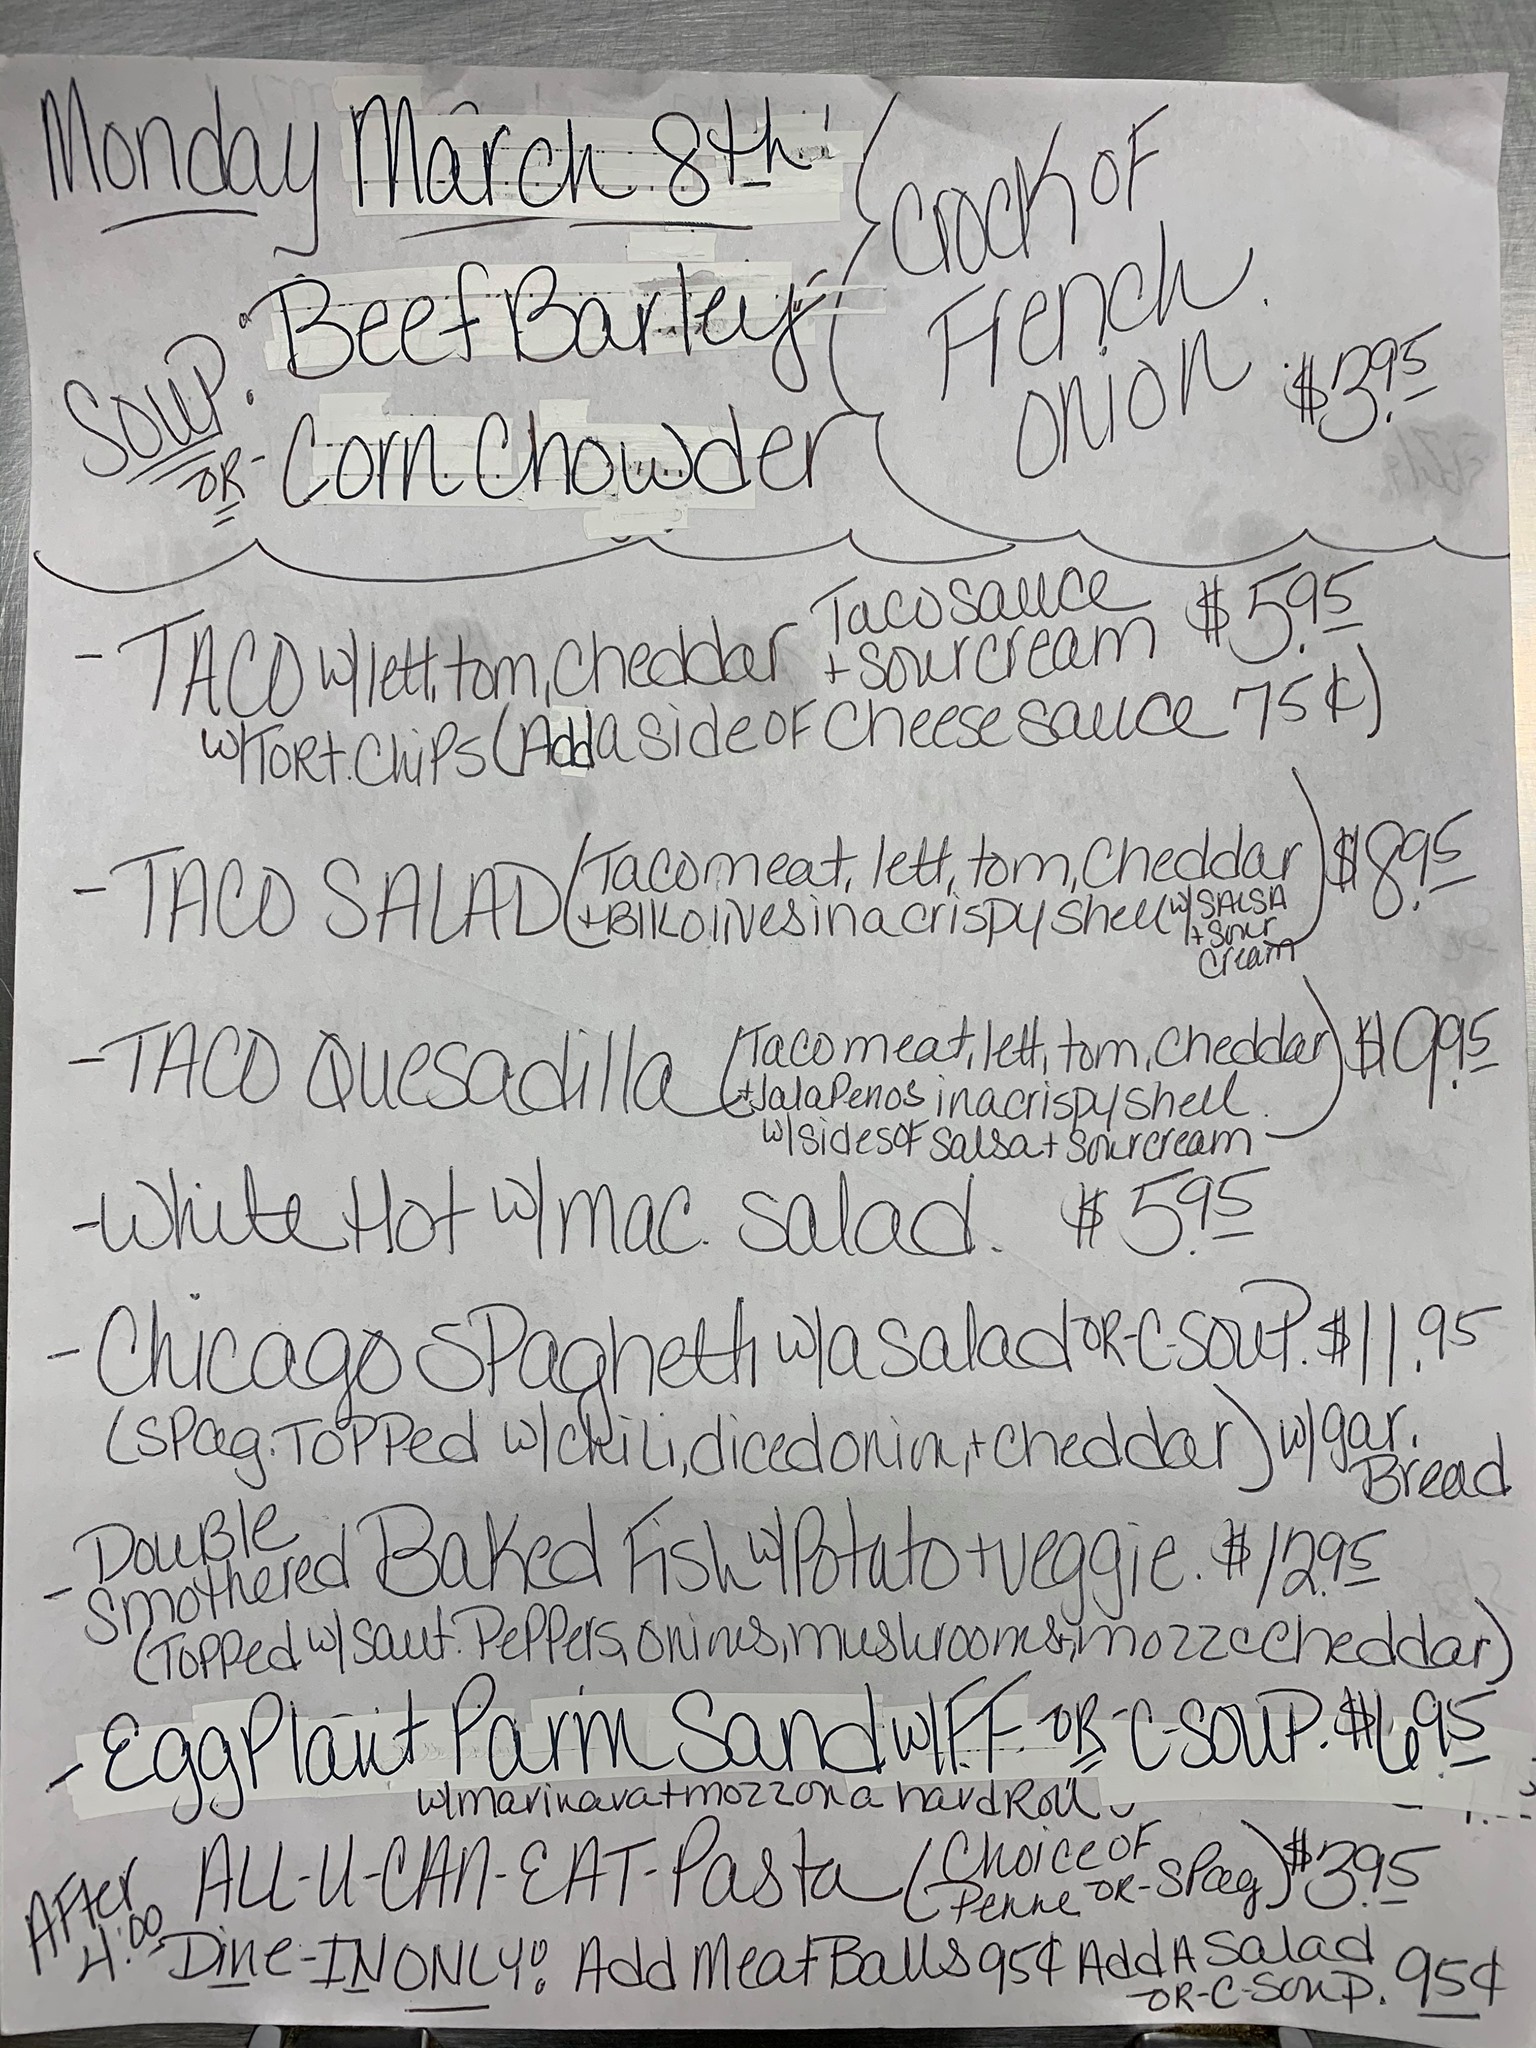 Monday March 8th
SOUP: Beef Barley
OR- Corn Chowder
Crock OF
French
Onion $3.95
- TACO w/lett, tom, Cheddar Taco sauce + sour cream $5.95
w/TORT. Chips (Add a side OF Cheese sauce 75¢)
- TACO SALAD (Taco meat, lett, tom, Cheddar $8.95
+ Blk olives in a crispy shell w/ SALSA + sour cream)
- TACO Quesadilla (Taco meat, lett, tom, Cheddar $9.95
+ JalaPenos in a crispy shell
w/sides OF Salsa + sour cream)
- White Hot w/mac. salad. $5.95
- Chicago SPaghetti w/a salad OR-C-SOUP. $11.95
(SPag. TOPPed w/chili, diced onion, + cheddar) w/gar. Bread
- Double Smothered Baked Fish w/Potato + veggie. $12.95
(TOPPed w/saut. PePPers, onions, mushrooms, mozz c Cheddar)
- EggPlant Parm Sand w/F.F. OR -C-SOUP. $6.95
w/marinara + mozz on a hard Roll
After 4:00
ALL-U-CAN-EAT-Pasta (Choice OF Penne OR-SPag) $3.95
Dine-IN ONLY! Add MeatBalls 95¢ Add A Salad OR-C-SOUP. 95¢